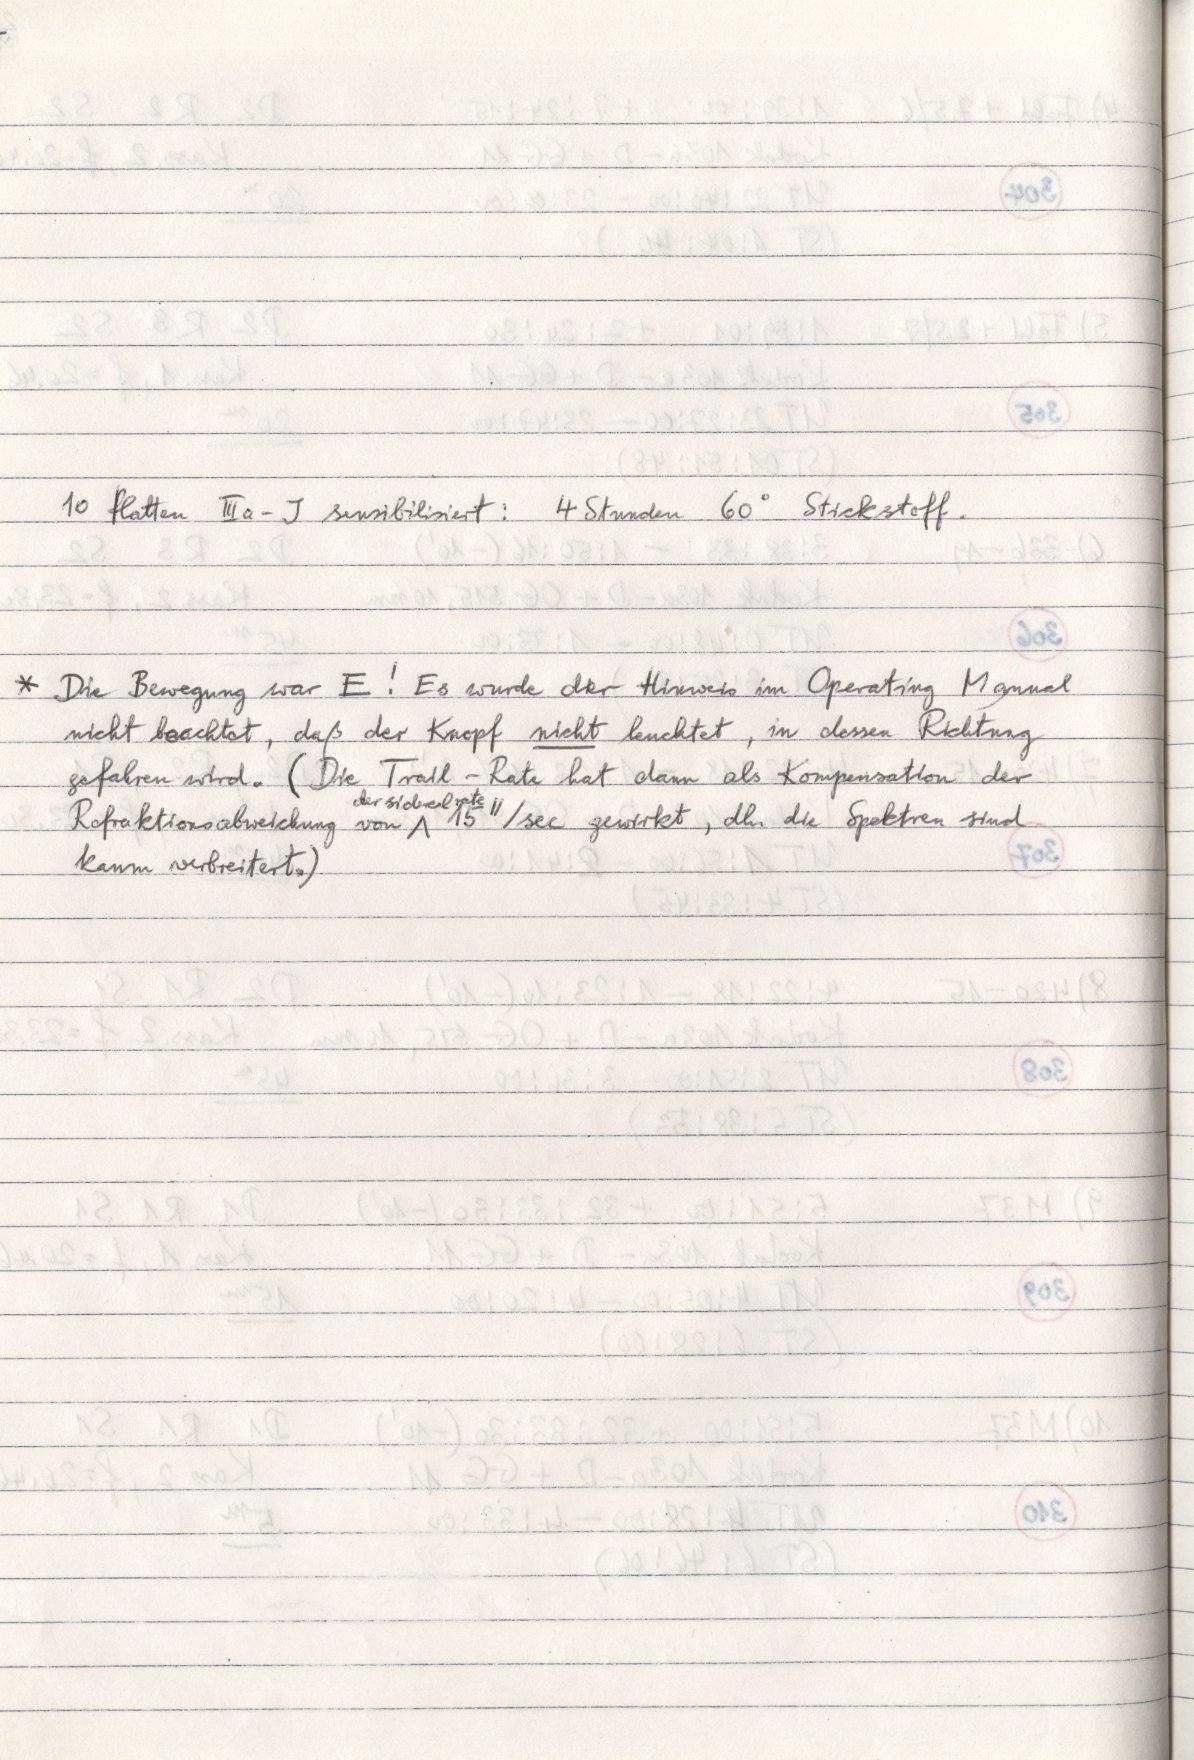 10 Platten IIIa-J sensibilisiert: 4 Stunden 60° Stickstoff.
* Die Bewegung war E! Es wurde der Hinweis im Operating Manual
nicht beachtet, daß der Knopf nicht leuchtet, in dessen Richtung
gefahren wird. (Die Trail-Rate hat dann als Kompensation der
der sidereal rate
Refraktionsabweichung von 15"/sec gewirkt, dh. die Spektren sind
kaum verbreitert.)